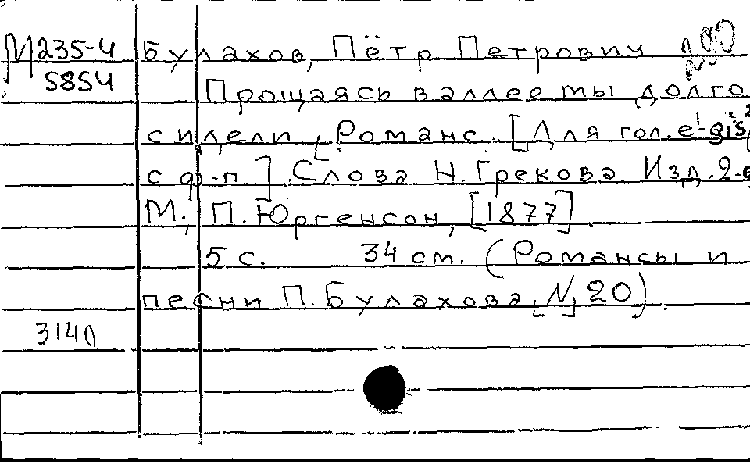 М235-4 Булахов, Пётр Петрович
5854 Прощаясь в аллее мы долго
сидели, Романс. [Для гол. e¹-gis²
с ф-п]. Слова Н. Грекова Изд. 2-е
М., П. Юргенсон, [1877].
5 с. 34 см. (Романсы и
песни П. Булахова, [N] 20).